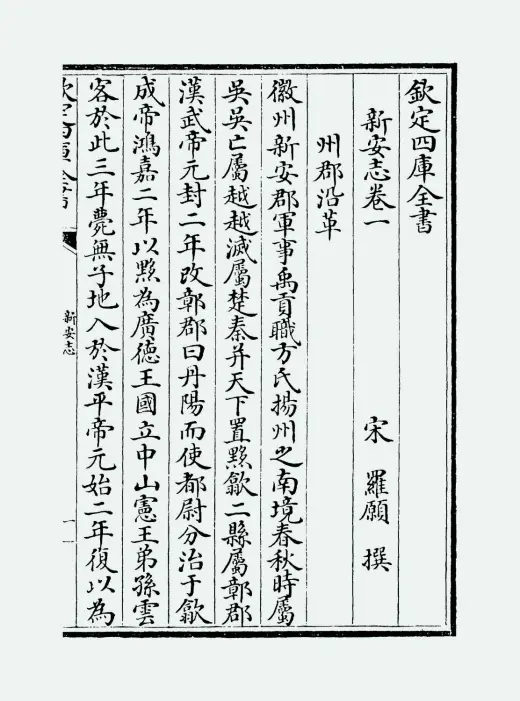 欽定四庫全書
新安志卷一 宋 羅願 撰
州郡沿革
徽州新安郡軍事禹貢職方氏揚州之南境春秋時屬
吳吳亡屬越越滅屬楚秦并天下置黟歙二縣屬鄣郡
漢武帝元封二年改鄣郡曰丹陽而使都尉分治于歙
成帝鴻嘉二年以黟為廣德王國立中山憲王弟孫雲
客於此三年薨無子地入於漢平帝元始二年復以為
新安志
一